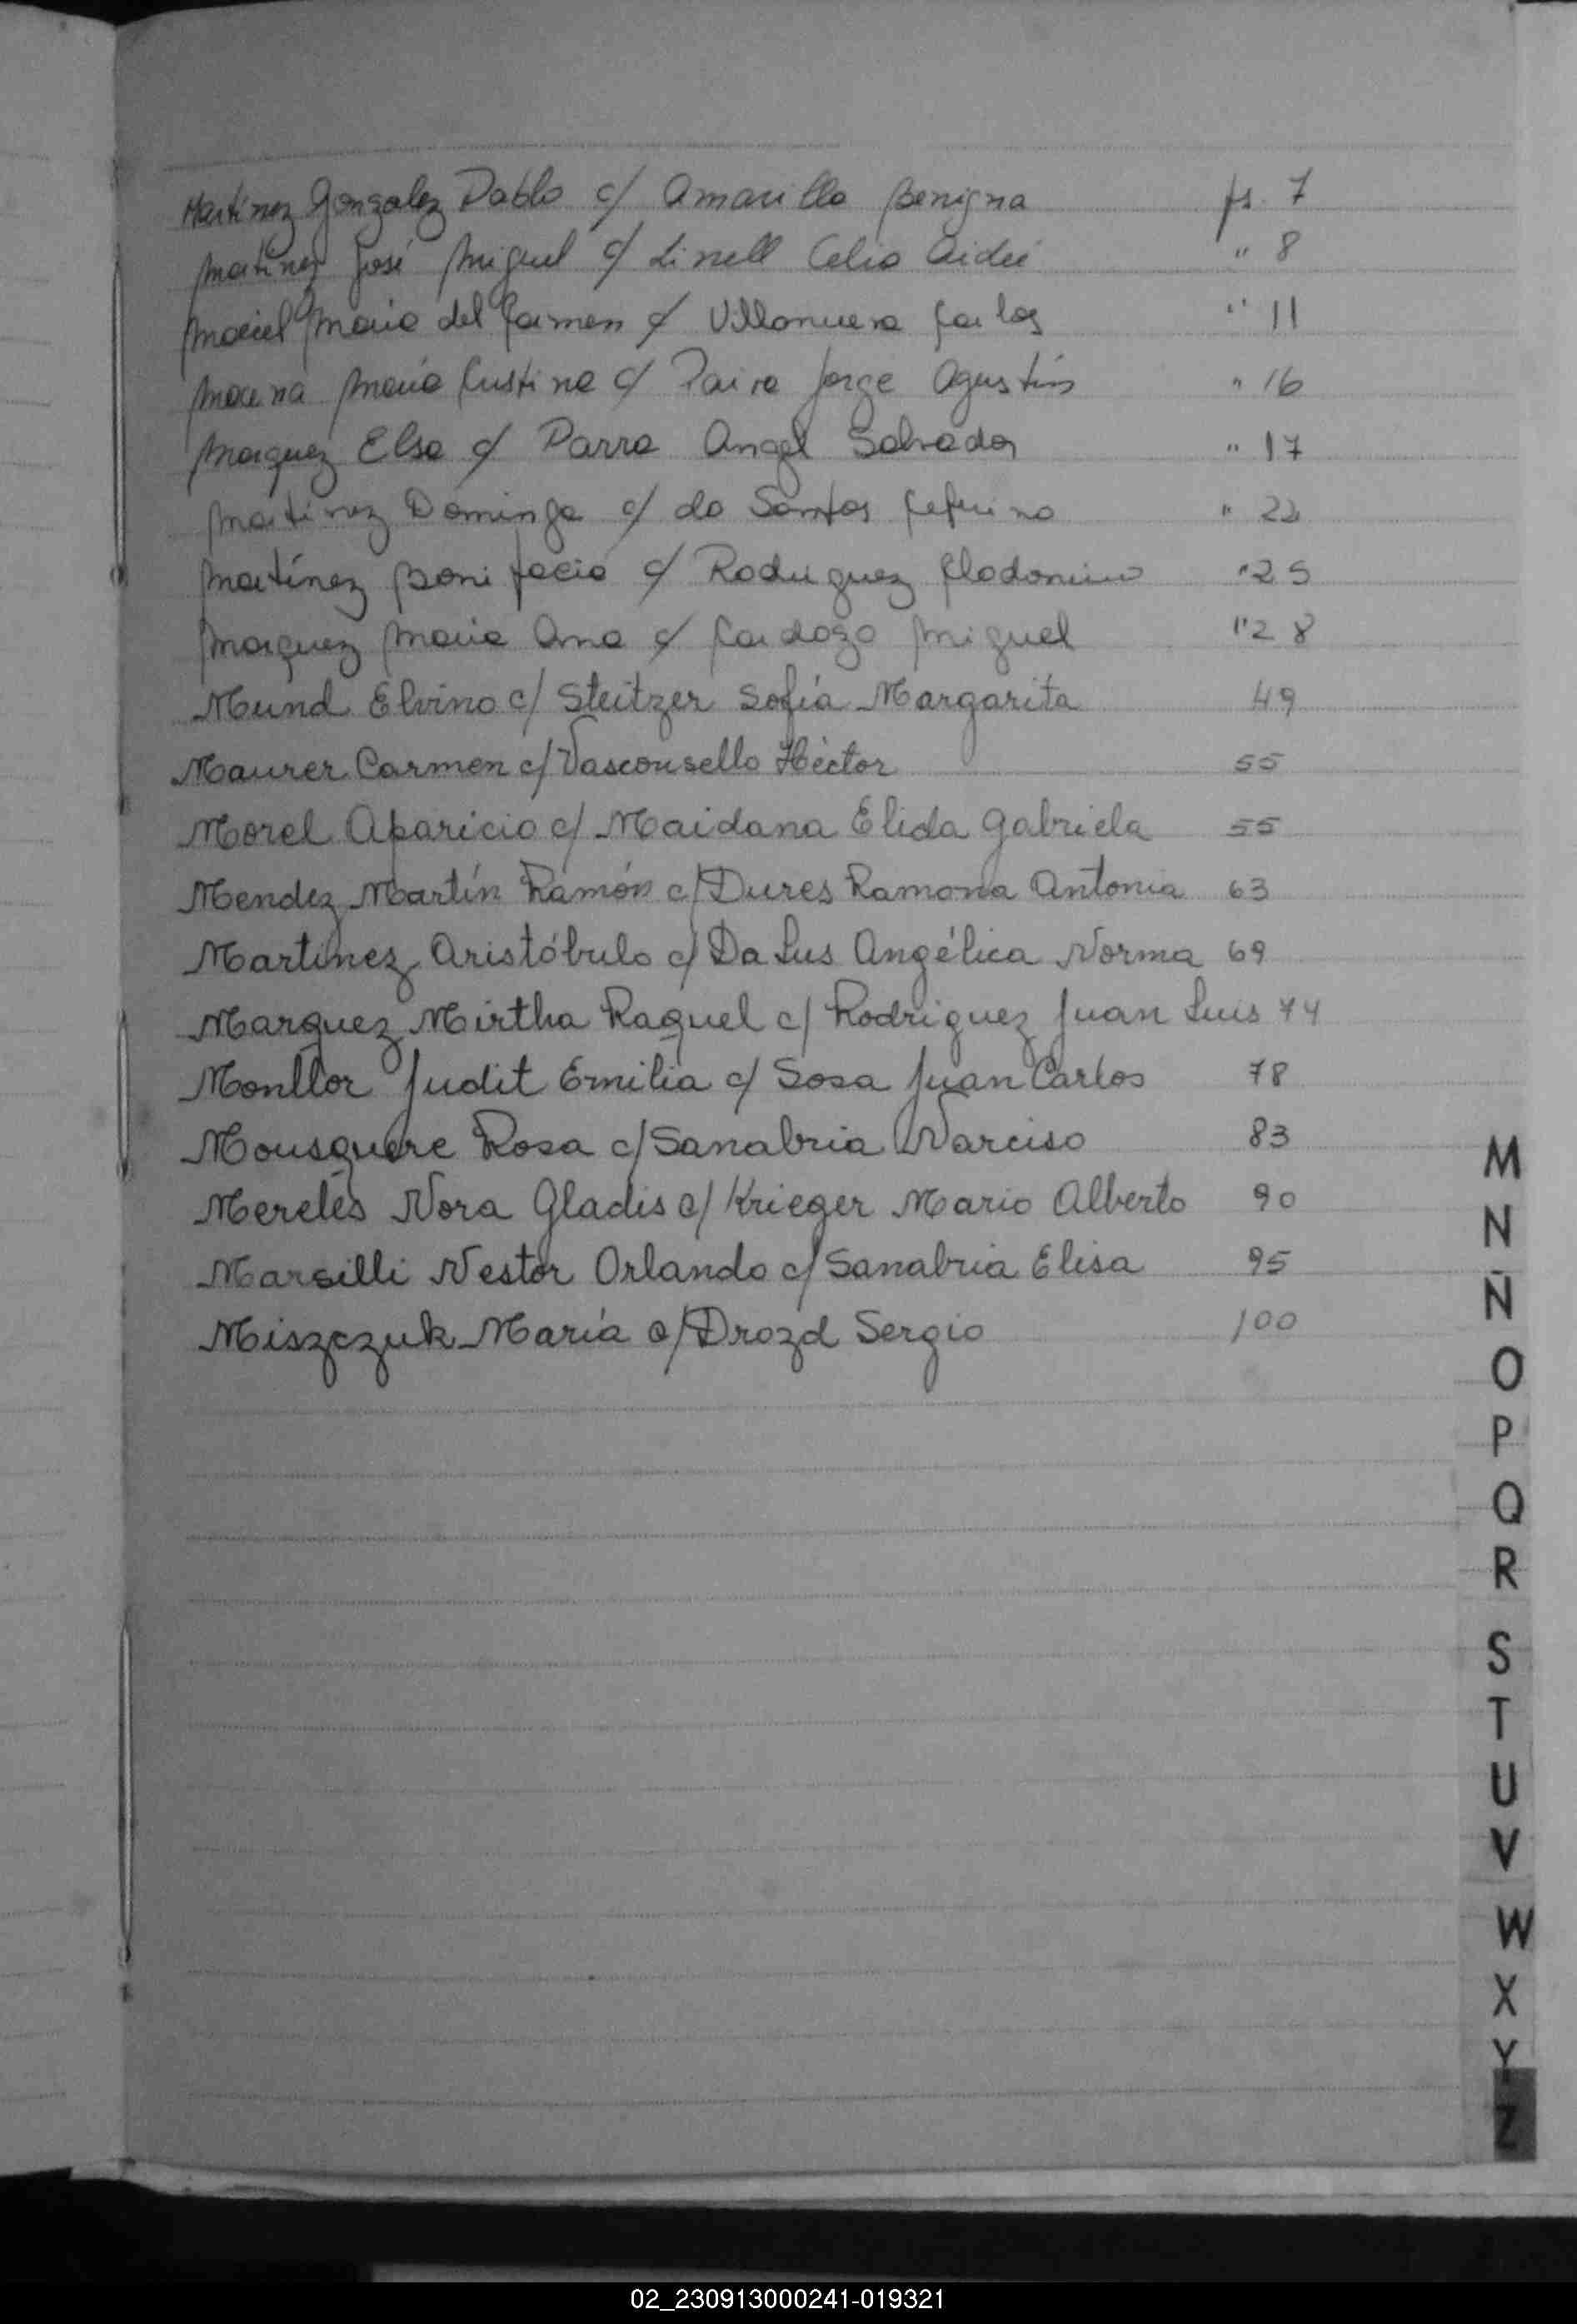 Martínez Gonzalez Pablo c/ Amarilla Benigna fs. 7
Martinez José Miguel c/ Linell Celia Aideé " 8
Maciel María del Carmen c/ Villanueva Carlos " 11
María Cristina c/ Paiva Jorge Agustín " 16
Marquez Elsa c/ Parra Angel Salvador " 17
Martinez Dominga c/ do Santos Ceferino " 22
Martínez Bonifacia c/ Rodriguez Clodomiro " 25
Marquez Maria Ana c/ Cardozo Miguel " 28
Mund Elvino c/ Steitzer Sofía Margarita 49
Maurer Carmen c/ Vasconsello Héctor 55
Morel Aparicio c/ Maidana Elida Gabriela 55
Mendez Martín Ramón c/ Dures Ramona Antonia 63
Martinez Aristóbulo c/ Da Lus Angélica Norma 69
Marquez Mirtha Raquel c/ Rodriguez Juan Luis 74
Monllor Judit Emilia c/ Sosa Juan Carlos 78
Mousquere Rosa c/ Sanabria Narciso 83
Mereles Nora Gladis c/ Krieger Mario Alberto 90
Marsilli Nestor Orlando c/ Sanabria Elisa 95
Miszczuk María c/ Drozd Sergio 100
M
N
Ñ
O
P
Q
R
S
T
U
V
W
X
Y
Z
02_230913000241-019321